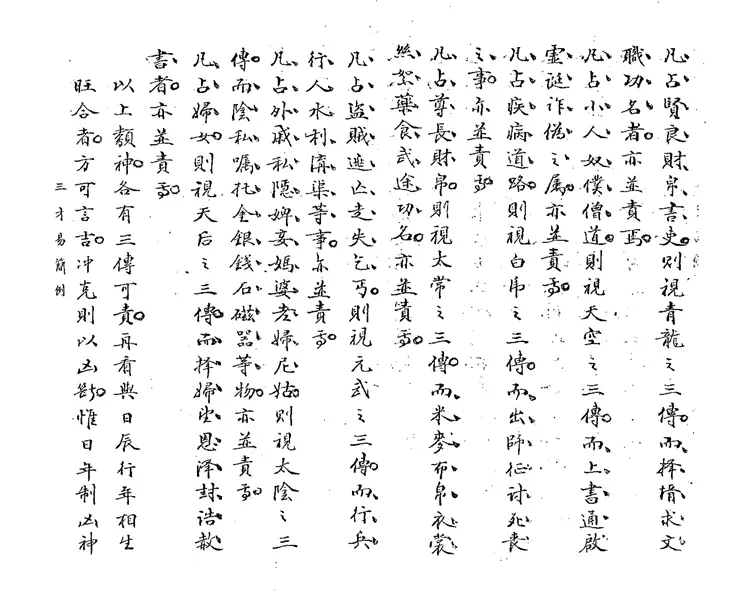 凡占賢良財帛書吏則視青龍之三傳而擇壻求文
職功名者亦並責焉
凡占小人奴僕僧道則視天空之三傳而上書通啟
靈誕詐偽之属亦並責焉
凡占疾病道路則視白虎之三傳而出師征討死喪
之事亦並責焉
凡占尊長財帛則視太常之三傳而米麥布帛衣裳
絲絮藥食武途功名亦並責焉
凡占盜賊逃亡走失乞丐則視元武之三傳而行兵
行人水利溝渠等事亦並責焉
凡占外戚私隱婢妾媽婆老婦尼姑則視太陰之三
傳而陰私嘱托金銀錢石磁器等物亦並責焉
凡占婦女則視天后之三傳而擇婦望恩澤封誥赦
書者亦並責焉
以上類神各有三傳可責再看與日辰行年相生
旺合者方可言吉冲克則以凶斷惟日年制凶神
三才易簡例